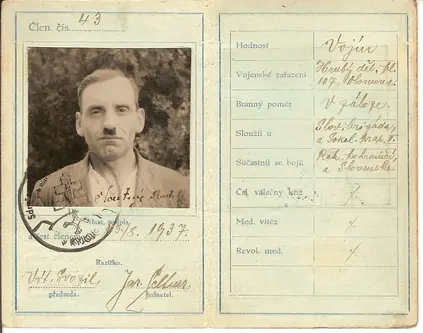 Člen. čís. 43
Vlast. podpis.
13/8. 1937
Razítko.
Vít. Zvozil Jar.
předseda. jednatel.
Hodnost Vojín
Vojenské zařazení Hrubý děl. pl.
107, Olomouc.
Branný poměr V záloze.
Sloužil u Slov. brigáda,
a Sokol.
Súčastnil se bojů
a Slovensko
Čsl. válečný kříž
Med. vítěz.
Revol. med.